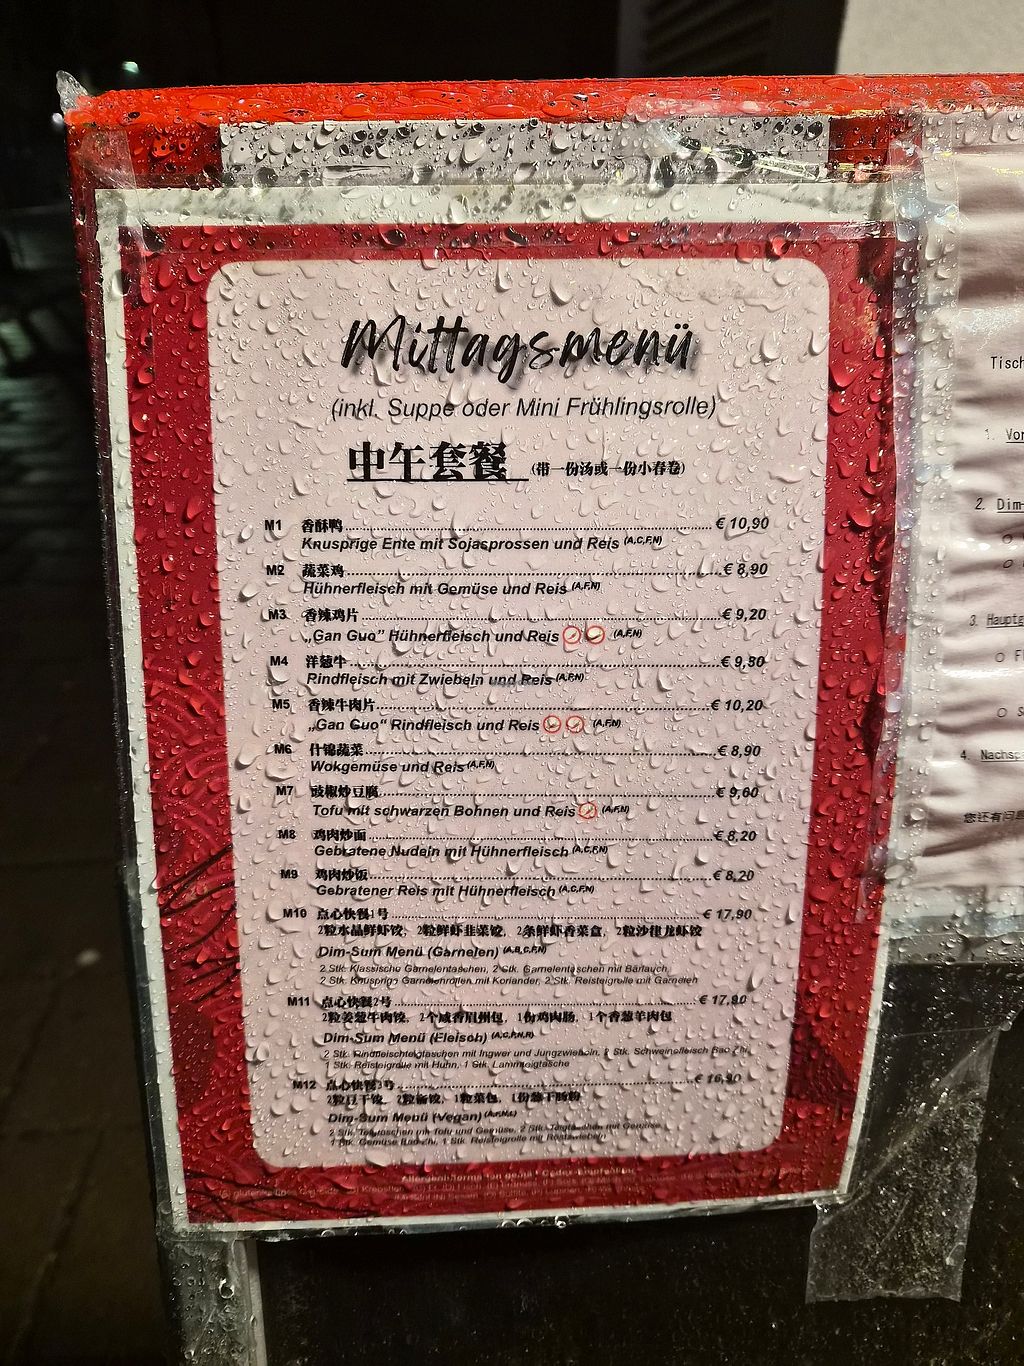 Mittagsmenü
(inkl. Suppe oder Mini Frühlingsrolle)
中午套餐 (带一份汤或一份小春卷)
M1 香酥鸭 € 10,90
Knusprige Ente mit Sojasprossen und Reis (A,C,F,N)
M2 蔬菜鸡 € 8,90
Hühnerfleisch mit Gemüse und Reis (A,F,N)
M3 香辣鸡片 € 9,20
„Gan Guo" Hühnerfleisch und Reis (A,F,N)
M4 洋葱牛 € 9,80
Rindfleisch mit Zwiebeln und Reis (A,F,N)
M5 香辣牛肉片 € 10,20
„Gan Guo" Rindfleisch und Reis (A,F,N)
M6 什锦蔬菜 € 8,90
Wokgemüse und Reis (A,F,N)
M7 豉椒炒豆腐 € 9,60
Tofu mit schwarzen Bohnen und Reis (A,F,N)
M8 鸡肉炒面 € 8,20
Gebratene Nudeln mit Hühnerfleisch (A,C,F,N)
M9 鸡肉炒饭 € 8,20
Gebratener Reis mit Hühnerfleisch (A,C,F,N)
M10 点心快餐1号 € 17,90
2粒水晶鲜虾饺, 2粒鲜虾韭菜饺, 2条鲜虾香菜盒, 2粒沙律龙虾饺
Dim-Sum Menü (Garnelen) (A,B,C,F,N)
2 Stk. Klassische Garnelentaschen, 2 Stk. Garnelentaschen mit Bärlauch,
2 Stk. Knusprige Garnelenrollen mit Koriander, 2 Stk. Reisteigrolle mit Garnelen
M11 点心快餐2号 € 17,90
2粒姜葱牛肉饺, 2个咸香眉州包, 1份鸡肉肠, 1个香葱羊肉包
Dim-Sum Menü (Fleisch)
2 Stk. Rindfleischteigtaschen mit Ingwer und Jungzwiebeln, 2 Stk. Schweinefleisch Bao Zhi,
1 Stk. Reisteigrolle mit Huhn, 1 Stk. Lammteigtasche
M12 点心快餐3号 € 16,90
Dim-Sum Menü (Vegan)
2 Stk. Teigtaschen mit Tofu und Gemüse, 2 Stk. Teigtaschen mit Gemüse,
1 Stk. Gemüse Bao Zhi, 1 Stk. Reisteigrolle mit Röstzwiebeln
Tisch
1. Vor
2. Dim-
3. Hauptg
4. Nachsp
您还有问